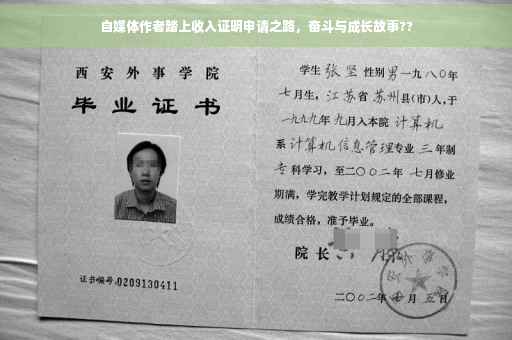 自媒体作者踏上收入证明申请之路，奋斗与成长故事??
西安外事学院
毕业证书
证书编号:0209130411
学生 张坚 性别 男 一九八〇年
七月生，江苏省 苏州 县(市)人，于
一九九九年九月入本院 计算机
系 计算机信息管理 专业 三 年制
专 科学习，至二〇〇二年 七月修业
期满，学完教学计划规定的全部课程，
成绩合格，准予毕业。
院长
二〇〇二年 月 五日